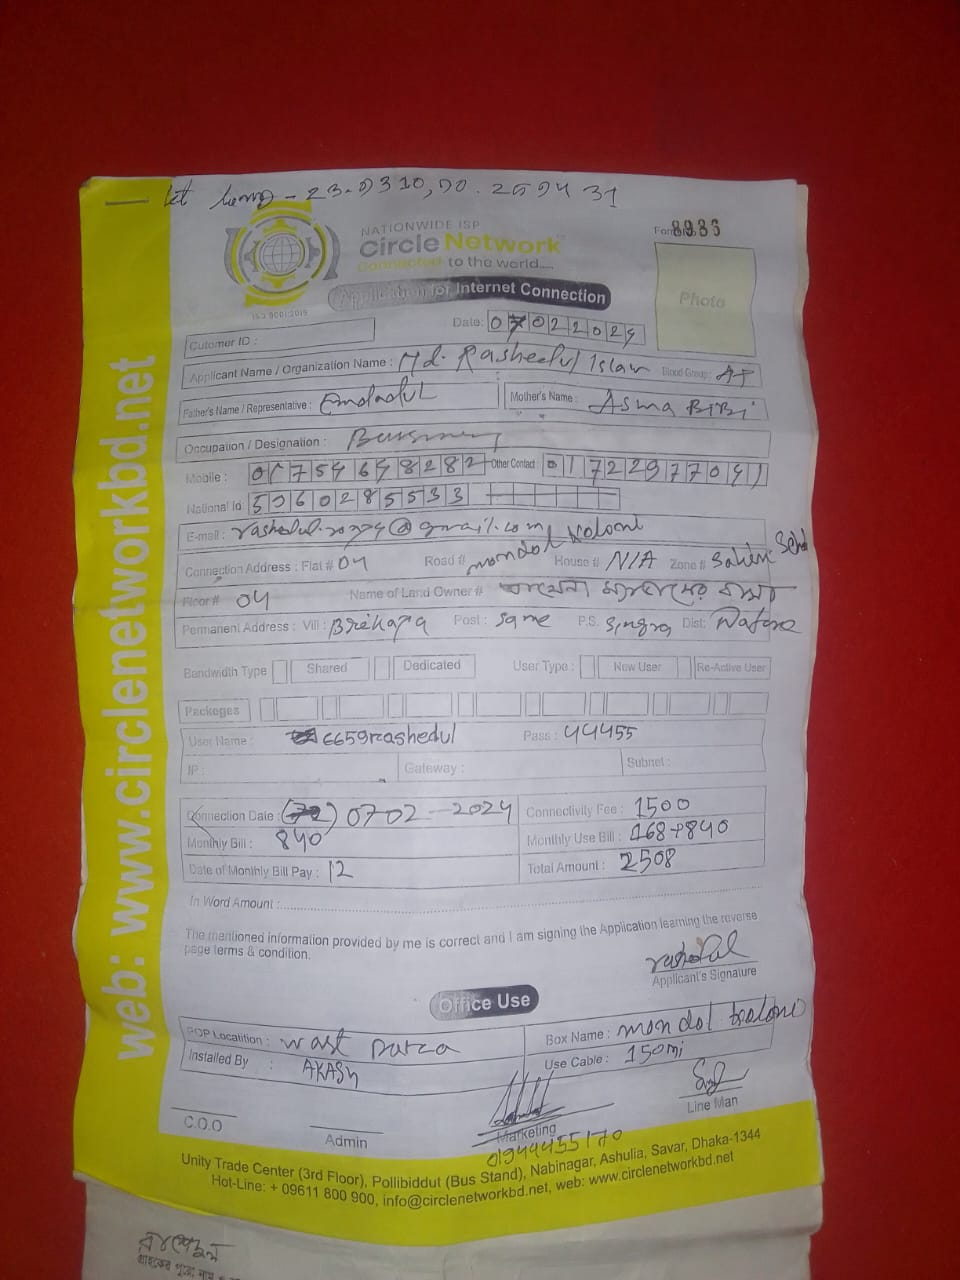 23.9310,90.259431
NATIONWIDE ISP
Circle Network
Connected to the world....
ISO 9001:2015
Application for Internet Connection
Photo
Cutomer ID :
Date: 07022024
Applicant Name / Organization Name : Md. Rasheedul Islam Blood Group: A+
Father's Name / Representative : Emdadul Mother's Name : Asma BiBi
Occupation / Designation :
Mobile : 01754648282 Other Contact : 01722977041
National Id 5060285533
E-mail :
Connection Address : Flat # 04 Road # mondol koloni House # N/A Zone #
Floor # 04 Name of Land Owner #
Permanent Address : Vill : Post : same P.S. Singra Dist: Natore
Bandwidth Type Shared Dedicated User Type : New User Re-Active User
Packeges
User Name : 6659rashedul Pass : 44455
IP : Gateway : Subnet :
Connection Date : 0702-2024 Connectivity Fee : 1500
Monthly Bill : 840 Monthly Use Bill : 168+840
Date of Monthly Bill Pay : 12 Total Amount : 2508
In Word Amount :
The mentioned information provided by me is correct and I am signing the Application learning the reverse
page terms & condition.
rashedul
Applicant's Signature
Office Use
POP Locatition : wast Box Name : mondol koloni
Installed By : AKASH Use Cable : 150mi
C.O.O Admin Marketing Line Man
01944455170
Unity Trade Center (3rd Floor), Pollibiddut (Bus Stand), Nabinagar, Ashulia, Savar, Dhaka-1344
Hot-Line: + 09611 800 900, info@circlenetworkbd.net, web: www.circlenetworkbd.net
web: www.circlenetworkbd.net
রাশেদুল